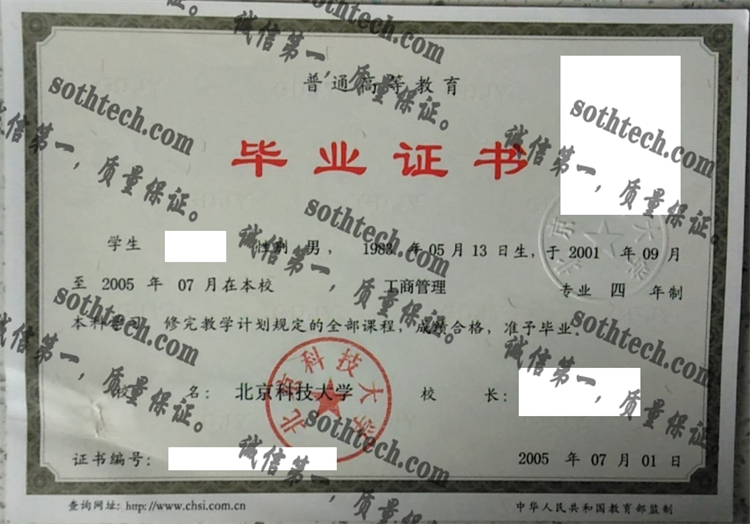 普通高等教育
毕业证书
学生 性别 男， 1983 年 05 月 13 日生，于 2001 年 09 月
至 2005 年 07 月在本校 工商管理 专业 四 年制
本科 学习 修完教学计划规定的全部课程，成绩合格，准予毕业。
校 名：北京科技大学 校 长：
北京科技大学
证书编号： 2005 年 07 月 01 日
查询网址：http://www.chsi.com.cn 中华人民共和国教育部监制
sothtech.com
诚信第一，质量保证。
sothtech.com
诚信第一，质量保证。
sothtech.com
诚信第一，质量保证。
sothtech.com
诚信第一，质量保证。
sothtech.com
诚信第一，质量保证。
sothtech.com
诚信第一，质量保证。
sothtech.com
诚信第一，质量保证。
sothtech.com
诚信第一，质量保证。